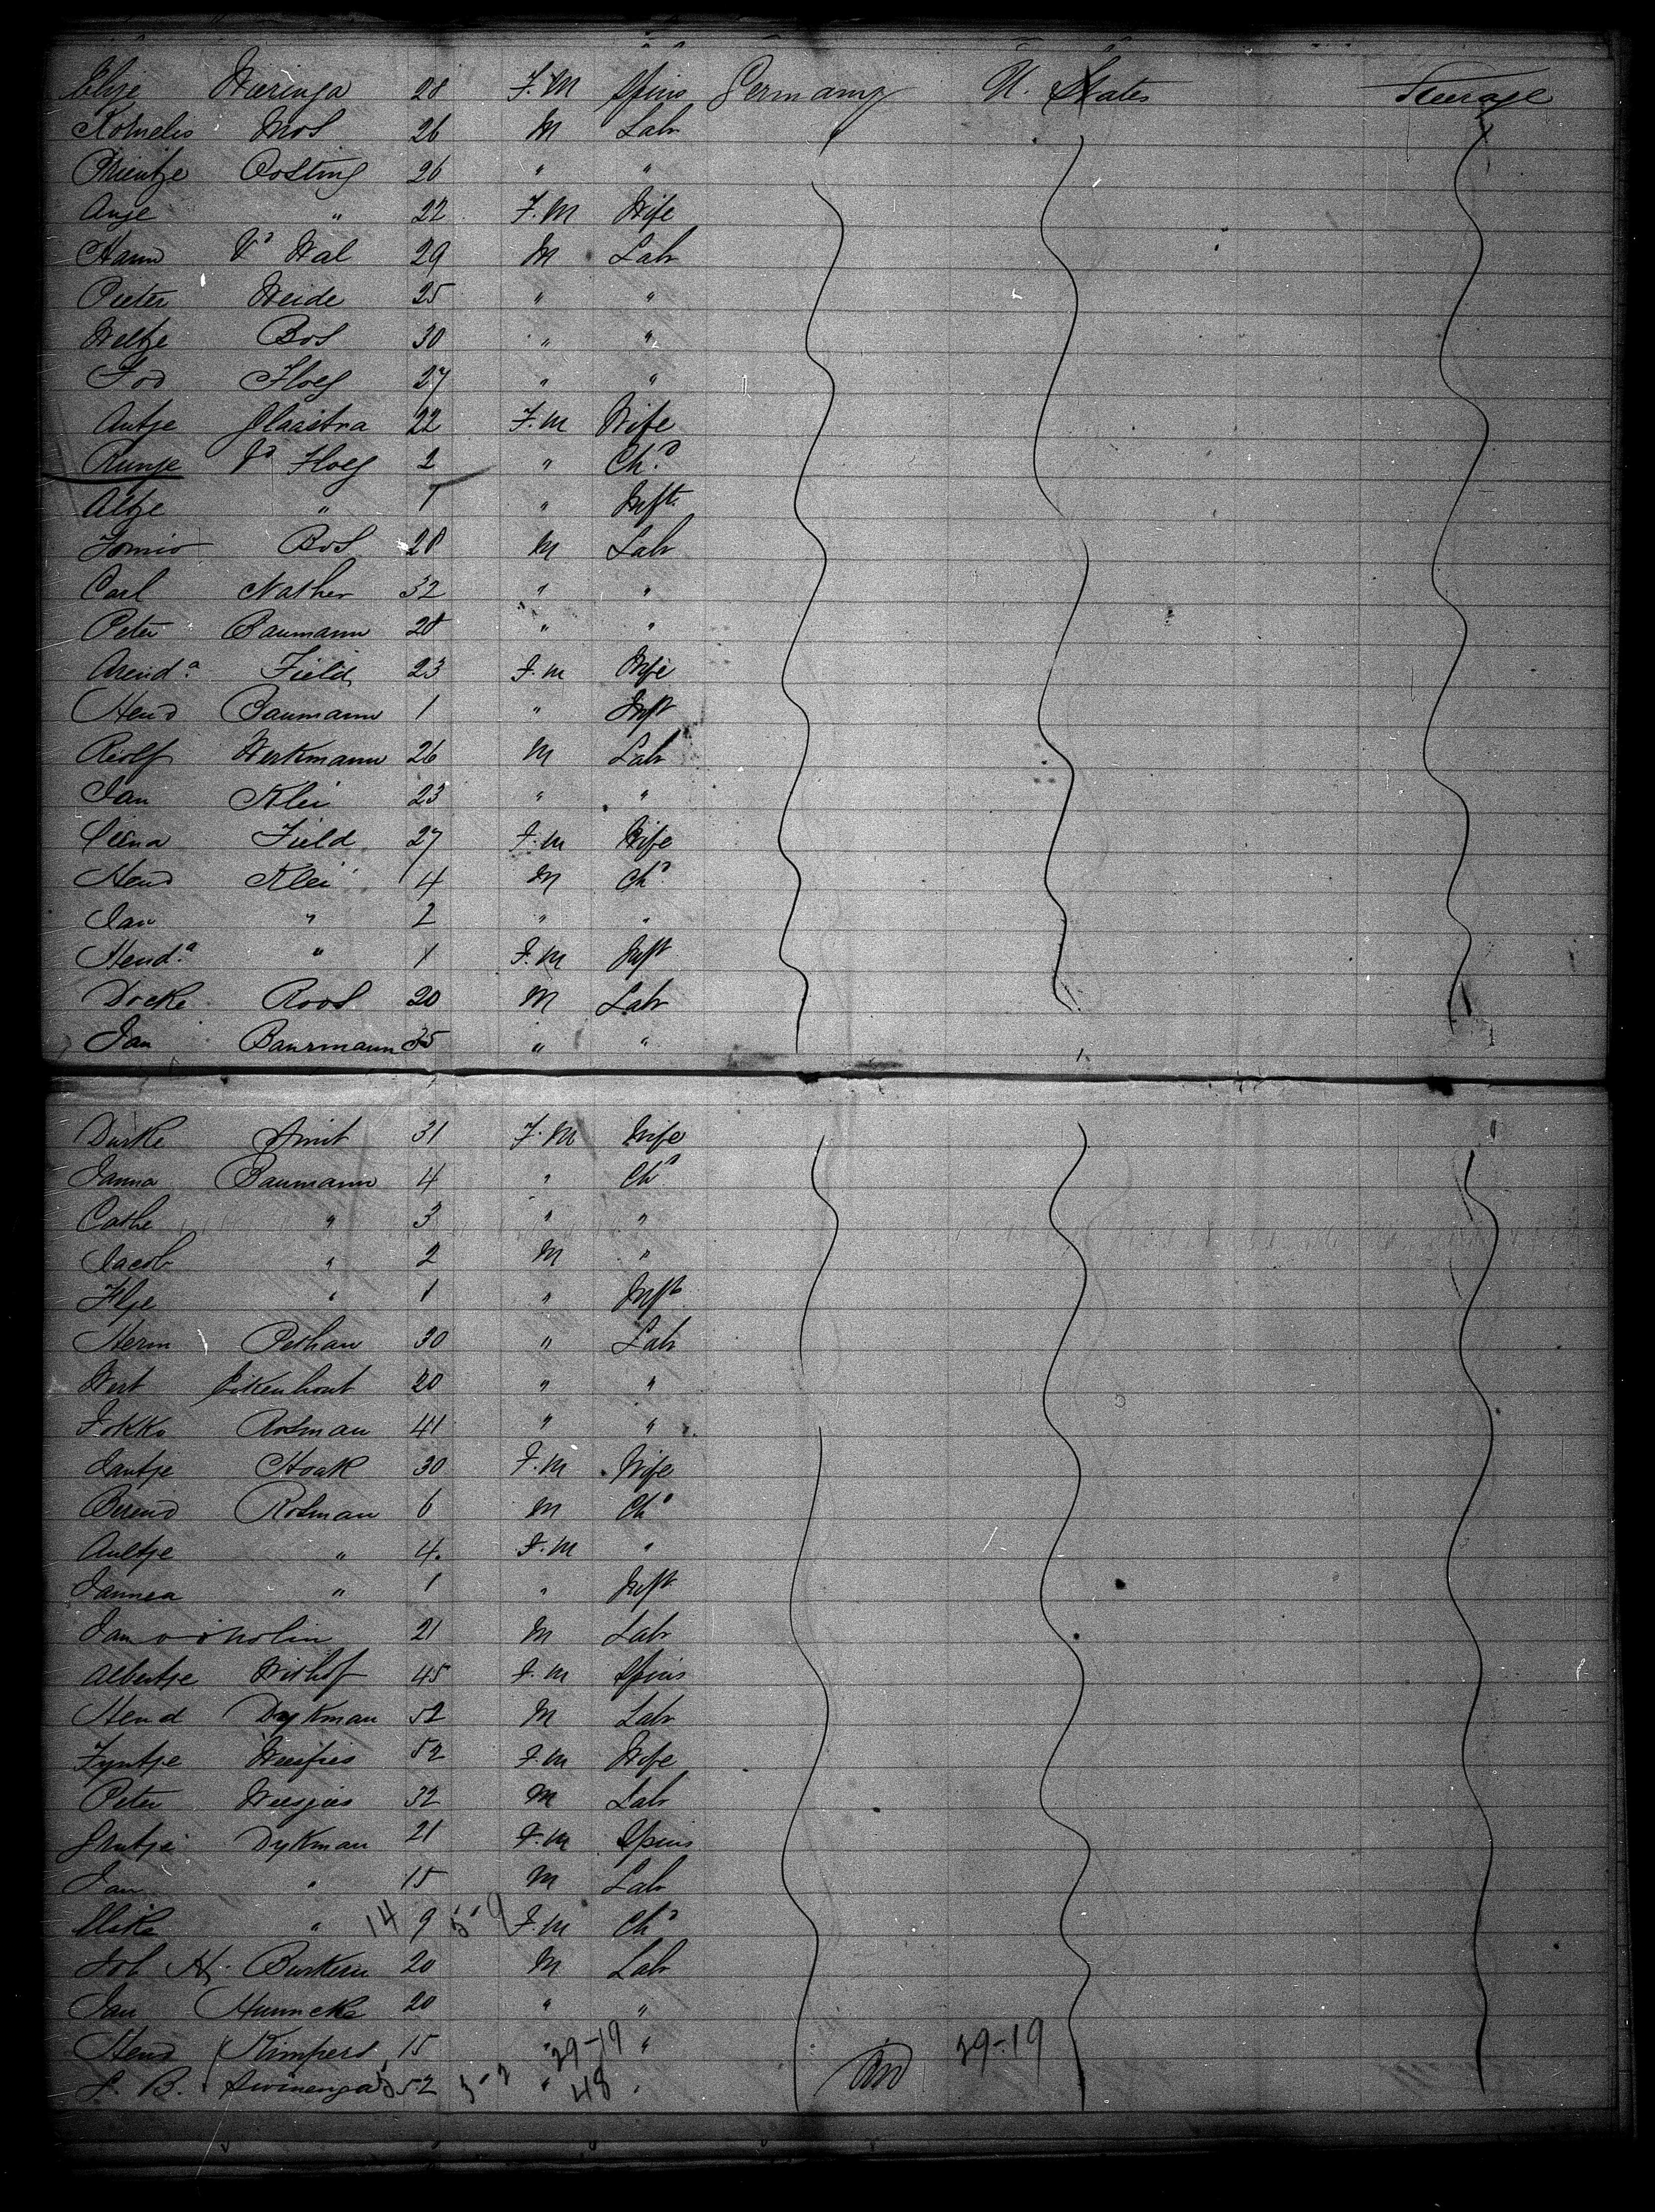 Eltje Wieringa 28 F.M Spins Germany U. States Steerage
Kornelis Mos 26 M Labr
Rientje Oosting 26 " "
Anje " 22 F.M Wife
Harm Vd Wal 29 M Labr
Pieter Weide 25 " "
Weltje Bos 30 " "
Hoeg 27 " "
Antje Glaastra 22 F.M Wife
Runje Vd Hoeg 2 " Chd
Altje " 1 " Inft
Bos 28 M Labr
Carl Nather 32 " "
Peter Baumann 28 " "
Arenda Field 23 F.M Wife
Hend Baumann 1 " Inft
Rolf Werkmann 26 M Labr
Jan Klei 23 " "
Field 27 F.M Wife
Hend Klei 4 M Chd
Jan " 2 " "
Henda " 1 F.M Inft
Docke Roos 20 M Labr
Jan Baurmann 35 " "
Durke Smit 31 F.M Wife
Janna Baumann 4 " Chd
Cathe " 3 " "
Jacob " 2 M "
Ilje " 1 " Inft
Herm Pethan 30 " Labr
Wert Eikenhout 20 " "
Fokko Rosman 41 " "
Jantje Hoak 30 F.M Wife
Berend Rosman 6 M Chd
Aultje " 4 F.M "
Jannea " 1 " Inft
Jan 21 M Labr
Albertje Withof 45 F.M Spins
Hend Dykman 52 M Labr
Fyntje 52 F.M Wife
Peter Weesjies 32 M Labr
Dykman 21 F.M Spins
Jan " 15 M Labr
" 14 9 5-9 F.M Chd
Joh H. Buskern 20 M Labr
Jan Hunneke 20 " "
Hend Kimpers 15 " 29-19 " 29-19
L. B. Swinenga 52 " 48 "